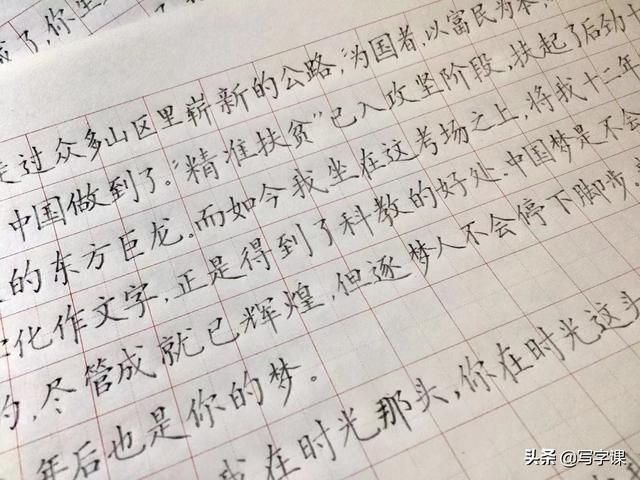 了,你生
走过众多山区里崭新的公路,“为国者,以富民为本,
中国做到了。“精准扶贫”已入攻坚阶段,扶起了后劲十
的东方巨龙。而如今我坐在这考场之上,将我十二年
化作文字,正是得到了科教的好处.中国梦是不会
的,尽管成就已辉煌,但逐梦人不会停下脚步,
年后也是你的梦。
我在时光那头,你在时光这头
头条 @写字课